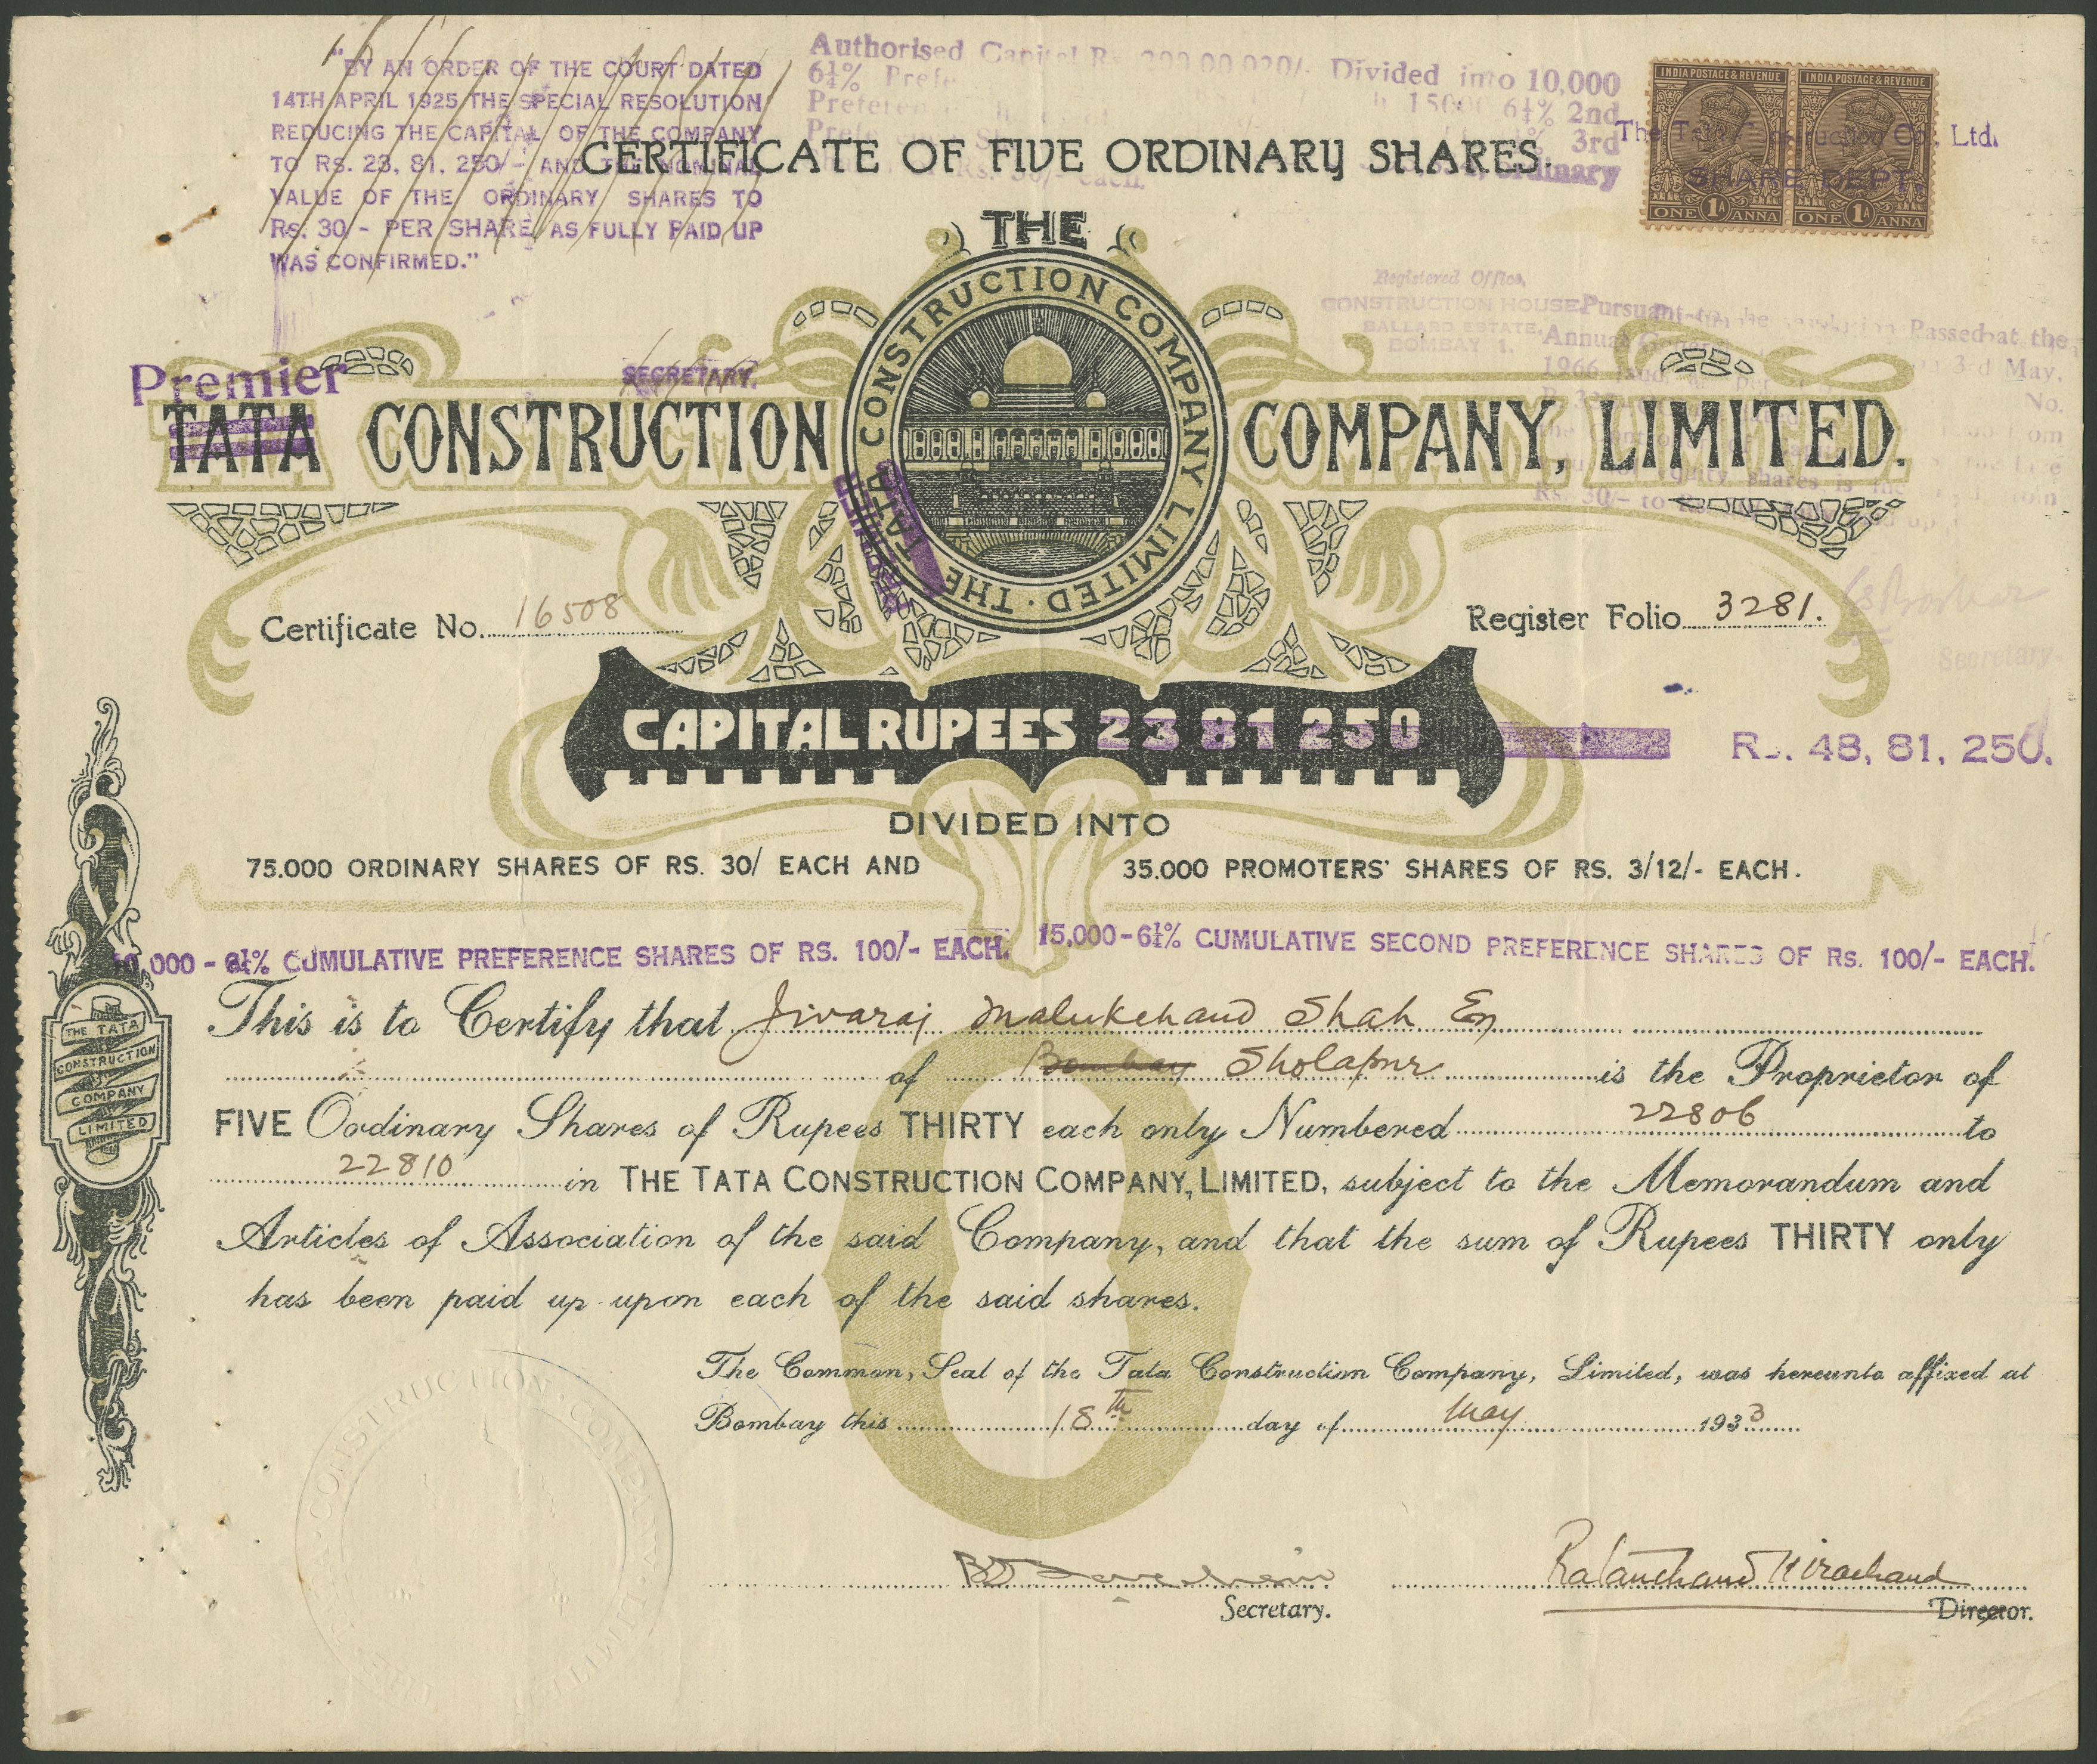 "BY AN ORDER OF THE COURT DATED
14TH APRIL 1925 THE SPECIAL RESOLUTION
REDUCING THE CAPITAL OF THE COMPANY
TO RS. 23, 81, 250/- AND THE NOMINAL
VALUE OF THE ORDINARY SHARES TO
Rs. 30 - PER SHARE, AS FULLY PAID UP
WAS CONFIRMED."
SECRETARY.
Authorised Capital Rs Divided into 10,000
6¼% Prefe
15000 6¼% 2nd
3rd
Rs. 30/- each. Ordinary
INDIA POSTAGE & REVENUE INDIA POSTAGE & REVENUE
ONE 1A ANNA ONE 1A ANNA
The Tata Construction Co., Ltd.
SHARE DEPT.
CERTIFICATE OF FIVE ORDINARY SHARES.
Registered Office,
CONSTRUCTION HOUSE
BALLARD ESTATE,
BOMBAY 1.
Pursuant to the Passed at the
Annual General
1966 3rd May,
No.
shares is
Rs. 30/- to
Secretary.
THE
Premier
TATA CONSTRUCTION COMPANY, LIMITED.
THE TATA CONSTRUCTION COMPANY LIMITED.
Certificate No. 16508
Register Folio 3281.
CAPITAL RUPEES 2381250
Rs. 48, 81, 250.
DIVIDED INTO
75.000 ORDINARY SHARES OF RS. 30/ EACH AND 35.000 PROMOTERS' SHARES OF RS. 3/12/- EACH.
10,000 - 6¼% CUMULATIVE PREFERENCE SHARES OF RS. 100/- EACH. 15,000-6¼% CUMULATIVE SECOND PREFERENCE SHARES OF Rs. 100/- EACH.
THE TATA
CONSTRUCTION
COMPANY
LIMITED
This is to Certify that Jivaraj Malukchand Shah Esq
of Bombay Sholapur is the Proprietor of
FIVE Ordinary Shares of Rupees THIRTY each only Numbered 22806 to
22810 in THE TATA CONSTRUCTION COMPANY, LIMITED, subject to the Memorandum and
Articles of Association of the said Company, and that the sum of Rupees THIRTY only
has been paid up upon each of the said shares.
The Common, Seal of the Tata Construction Company, Limited, was hereunto affixed at
Bombay this 18th day of May 1933
CONSTRUCTION COMPANY LIMITED
Ratanchand Hirachand
Secretary.
Director.